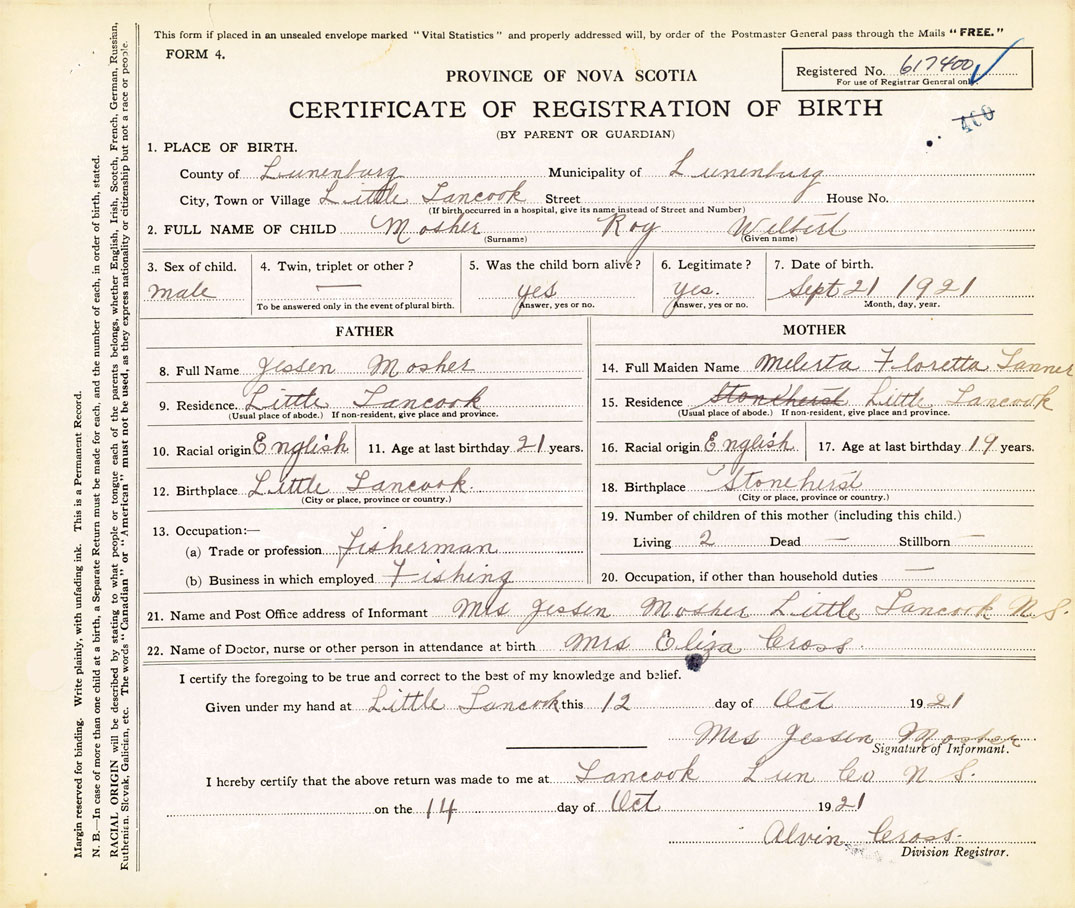 This form if placed in an unsealed envelope marked "Vital Statistics" and properly addressed will, by order of the Postmaster General pass through the Mails "FREE."
FORM 4.
Registered No. 617400
For use of Registrar General only
PROVINCE OF NOVA SCOTIA
CERTIFICATE OF REGISTRATION OF BIRTH
460
(BY PARENT OR GUARDIAN)
1. PLACE OF BIRTH.
County of Lunenburg Municipality of Lunenburg
City, Town or Village Little Tancook Street House No.
(If birth occurred in a hospital, give its name instead of Street and Number)
2. FULL NAME OF CHILD Mosher Roy Wilbert
(Surname) (Given name)
3. Sex of child. 4. Twin, triplet or other? 5. Was the child born alive? 6. Legitimate? 7. Date of birth.
male — yes yes. Sept 21 1921
To be answered only in the event of plural birth. Answer, yes or no. Answer, yes or no. Month, day, year.
FATHER
8. Full Name Jessen Mosher
9. Residence. Little Tancook
(Usual place of abode.) If non-resident, give place and province.
10. Racial origin English 11. Age at last birthday 21 years.
12. Birthplace Little Tancook
(City or place, province or country.)
13. Occupation:—
(a) Trade or profession fisherman
(b) Business in which employed Fishing
MOTHER
14. Full Maiden Name Milerta Floretta Tanner
15. Residence Stoneherst Little Tancook
(Usual place of abode.) If non-resident, give place and province.
16. Racial origin English 17. Age at last birthday 19 years.
18. Birthplace Stoneherst
(City or place, province or country.)
19. Number of children of this mother (including this child.)
Living 2 Dead — Stillborn —
20. Occupation, if other than household duties —
21. Name and Post Office address of Informant Mrs Jessen Mosher Little Tancook N.S.
22. Name of Doctor, nurse or other person in attendance at birth Mrs Eliza Cross.
I certify the foregoing to be true and correct to the best of my knowledge and belief.
Given under my hand at Little Tancook this 12 day of Oct 1921
Mrs Jessen Mosher
Signature of Informant.
I hereby certify that the above return was made to me at Tancook Lun Co N.S.
on the 14 day of Oct 1921
Alvin Cross.
Division Registrar.
Margin reserved for binding. Write plainly, with unfading ink. This is a Permanent Record.
N. B.—In case of more than one child at a birth, a Separate Return must be made for each, and the number of each, in order of birth, stated.
RACIAL ORIGIN will be described by stating to what people or tongue each of the parents belongs, whether English, Irish, Scotch, French, German, Russian,
Ruthenian, Slovak, Galician, etc. The words "Canadian" or "American" must not be used, as they express nationality or citizenship but not a race or people.